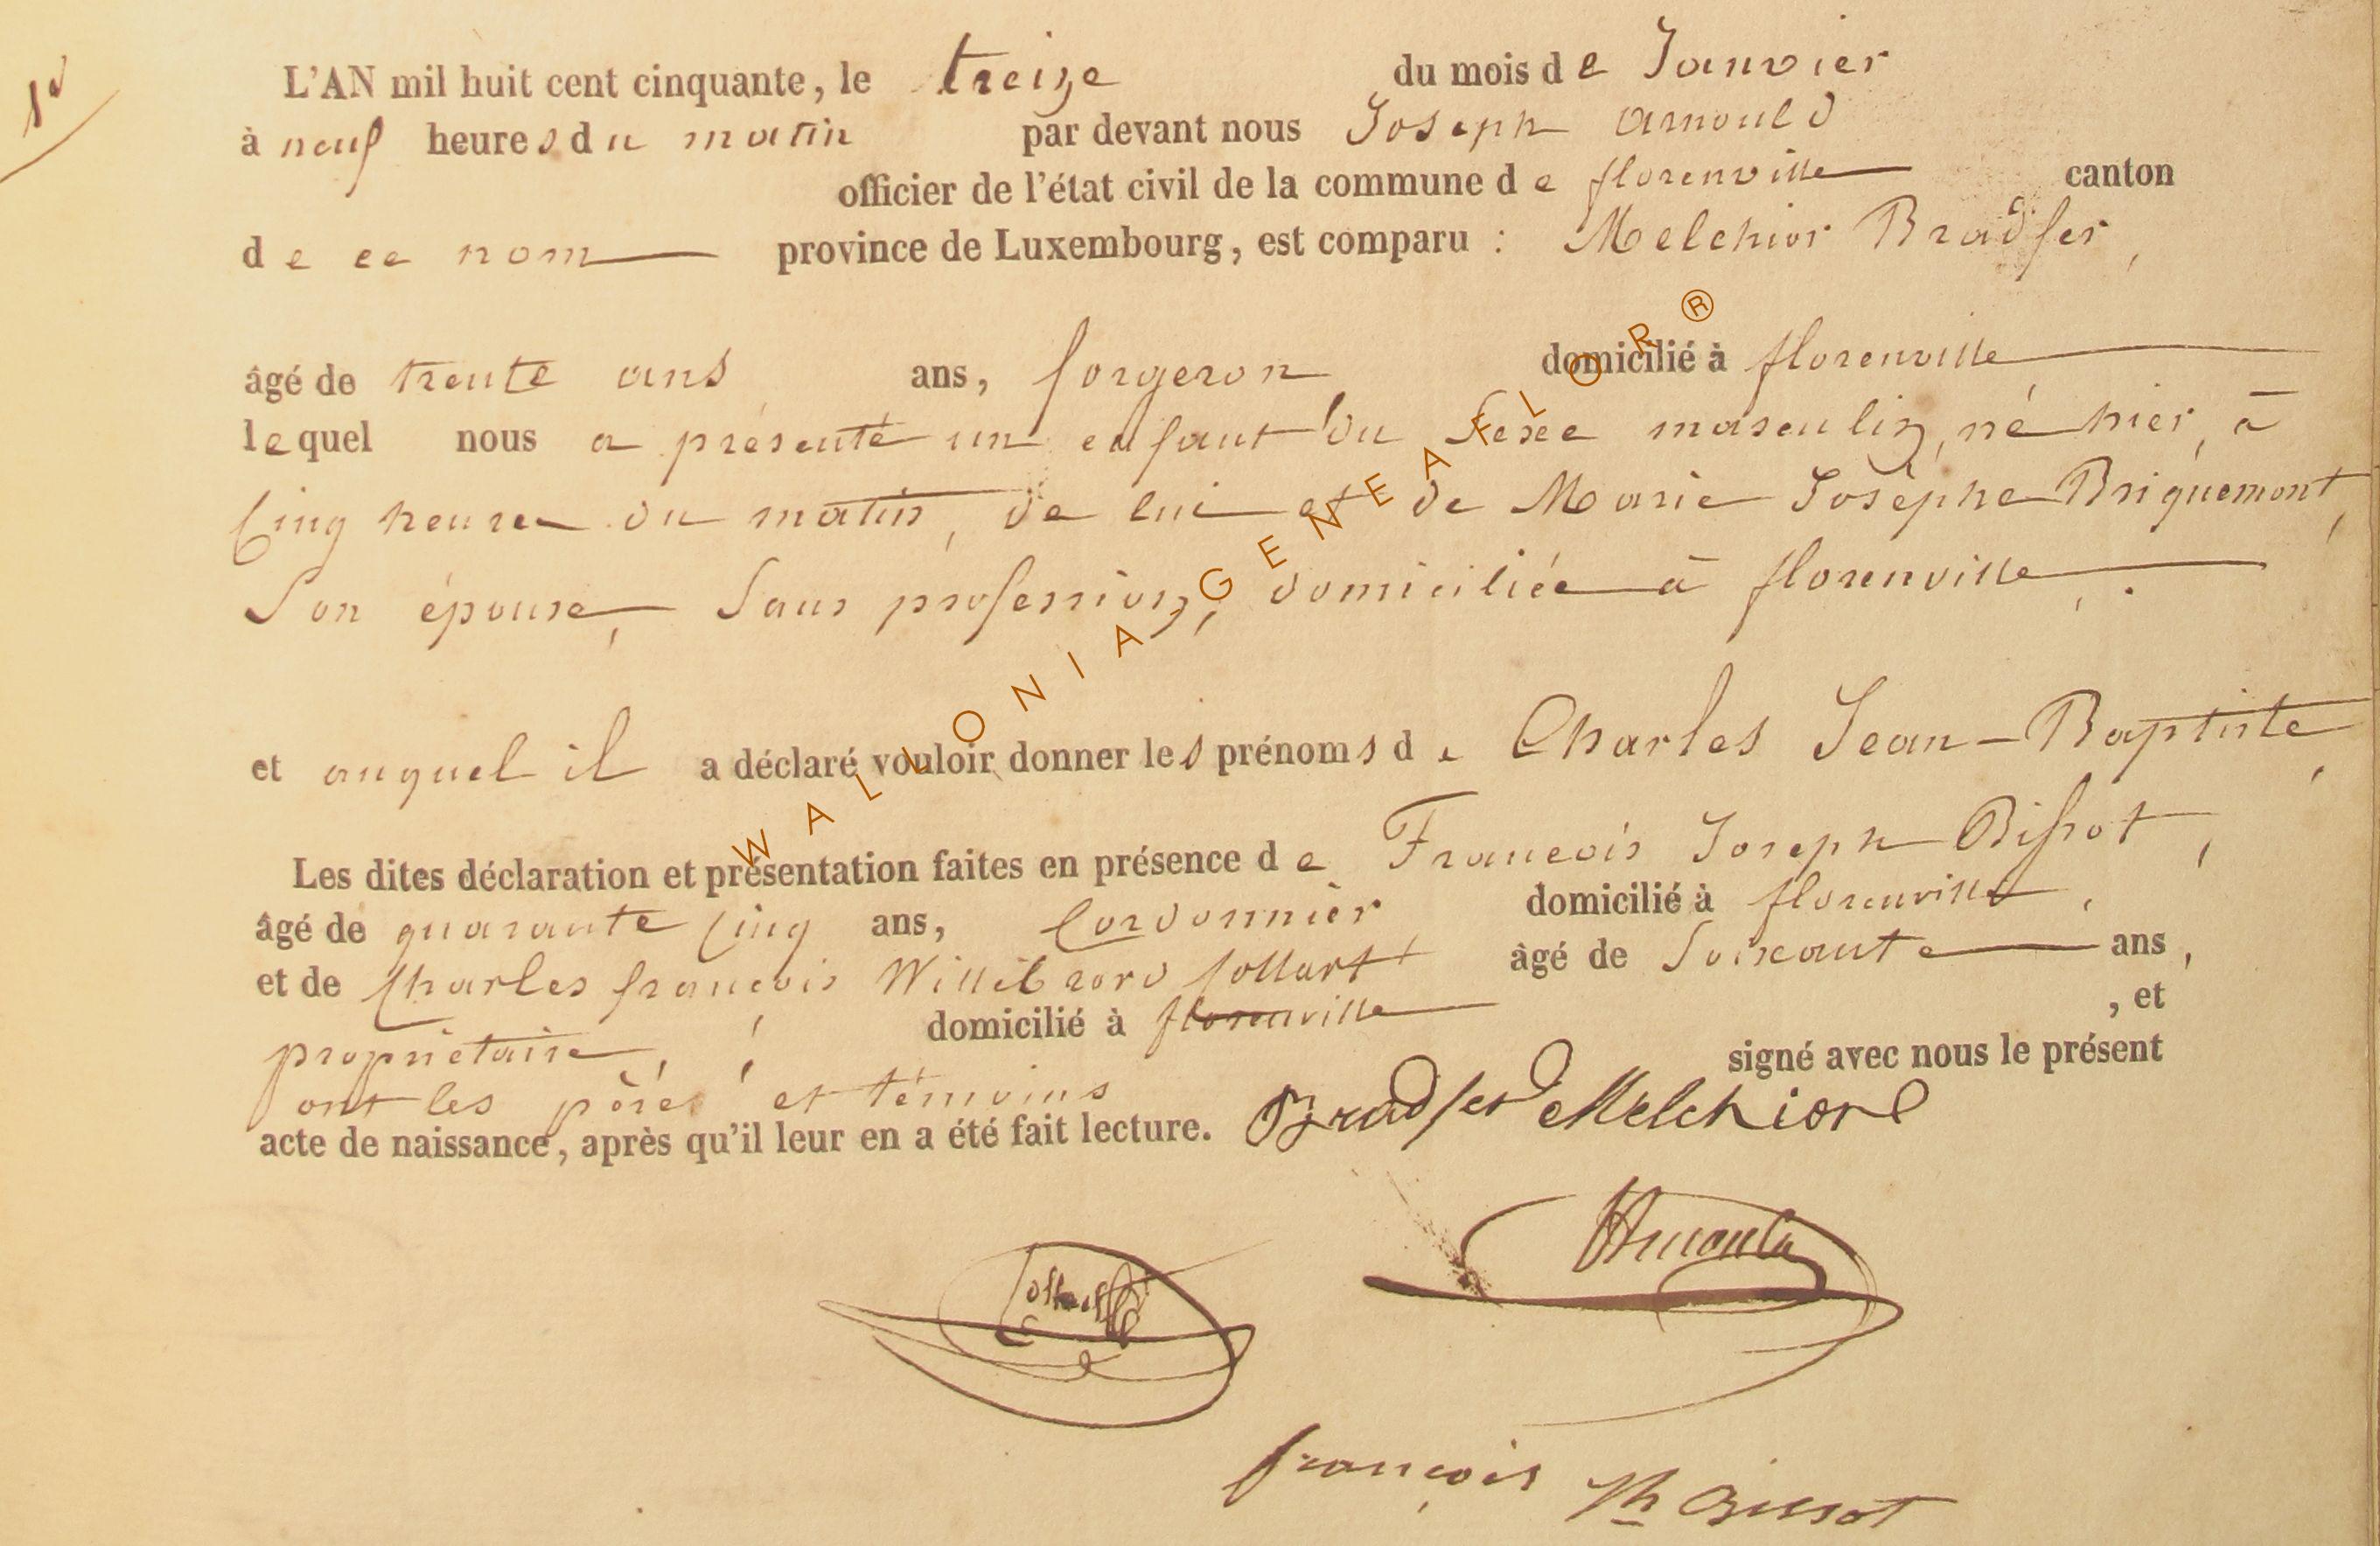 1er
L'AN mil huit cent cinquante, le treize du mois de Janvier
à neuf heures du matin par devant nous Joseph Arnould
officier de l'état civil de la commune de florenville canton
de ce nom province de Luxembourg, est comparu : Melchior Bradfer,
âgé de trente ans ans, forgeron, domicilié à florenville
lequel nous a présenté un enfant du Sexe masculin, né hier, à
Cinq heures du matin, de lui et de Marie Josèphe Briquemont,
Son épouse, Sans profession, domiciliée à florenville.
et auquel il a déclaré vouloir donner les prénoms de Charles Jean-Baptiste,
Les dites déclaration et présentation faites en présence de Francois Joseph Bissot,
âgé de quarante Cinq ans, Cordonnier, domicilié à florenville,
et de Charles françois Willibrord Collart âgé de Soixante ans,
propriétaire, domicilié à florenville, et
ont les père et témoins signé avec nous le présent
acte de naissance, après qu'il leur en a été fait lecture. Bradfer Melchior
Arnould
Collart
françois Jh Bissot
WALLONIA-GENEAFLOR ®